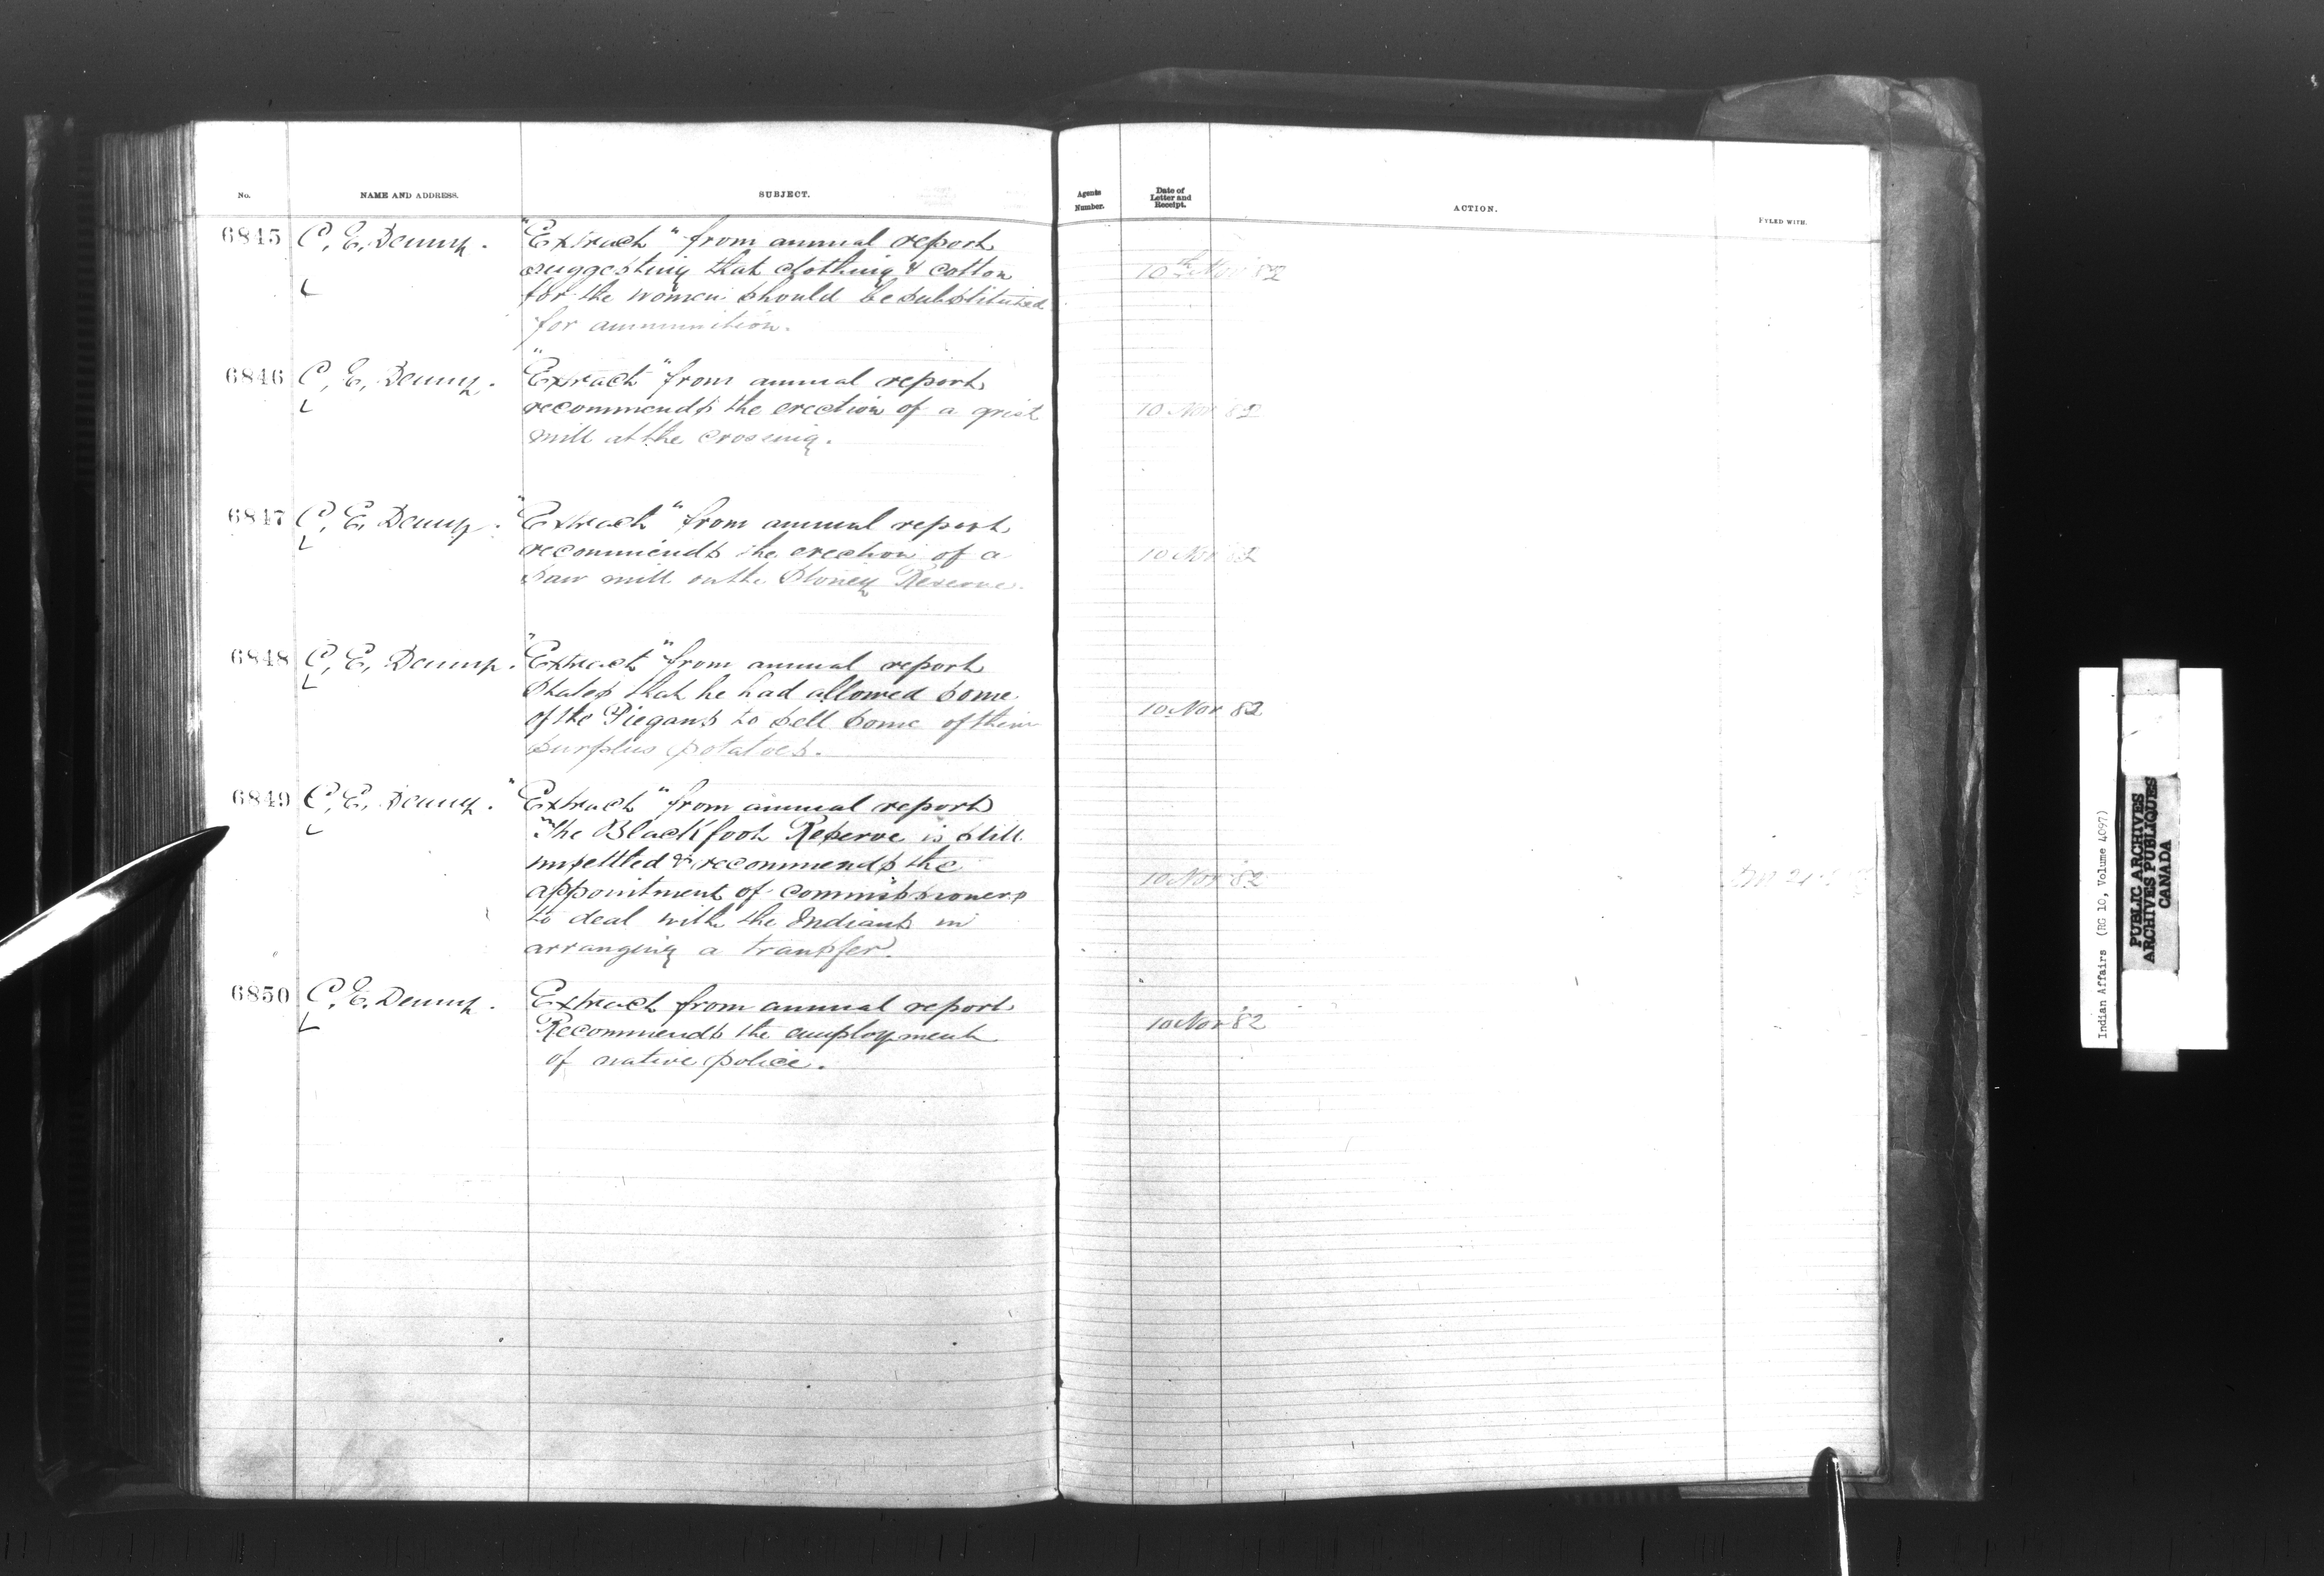 No. NAME AND ADDRESS. SUBJECT. Agents Number. Date of Letter and Receipt. ACTION. FYLED WITH.
6845 C. E. Denny. "Extract" from annual report
suggesting that clothing & cotton 10th Nov '82
for the women should be substituted
for ammunition.
6846 C. E. Denny. "Extract" from annual report
recommends the erection of a grist 10 Nov 82
mill at the crossing.
6847 C. E. Denny. "Extract" from annual report
recommends the erection of a 10 Nov 82
saw mill on the Stoney Reserve.
6848 C. E. Denny. "Extract" from annual report
states that he had allowed some
of the Piegans to sell some of their 10 Nov 82
surplus potatoes.
6849 C. E. Denny. "Extract" from annual report
"The Blackfoot Reserve is still
unsettled & recommends the
appointment of commissioners 10 Nov '82
to deal with the Indians in
arranging a transfer.
6850 C. E. Denny. Extract from annual report
Recommends the employment 10 Nov '82
of native police.
Indian Affairs (RG 10, Volume 4097)
PUBLIC ARCHIVES
ARCHIVES PUBLIQUES
CANADA